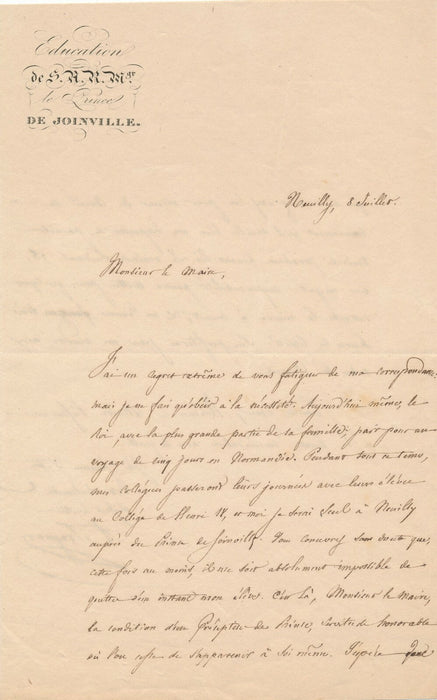 Education
de S. A. R. Mgr
le Prince
DE JOINVILLE.
Neuilly, 8 Juillet.
Monsieur le Maire,
J'ai un regret extrême de vous fatiguer de ma correspondance
mais je ne fais qu'obéir à la nécessité. Aujourd'hui même, le
Roi avec la plus grande partie de sa famille, part pour un
voyage de cinq jours en Normandie. Pendant tout ce tems,
mes collègues passeront leurs journées avec leurs élèves
au Collège de Henri IV, et moi je serai seul à Neuilly
auprès du Prince de Joinville. Vous concevez sans doute que,
cette fois au moins, il me soit absolument impossible de
quitter d'un instant mon élève. C'est là, Monsieur le Maire,
la condition d'un Précepteur de Prince, servitude honorable
où l'on cesse de s'appartenir à soi même. J'espère que